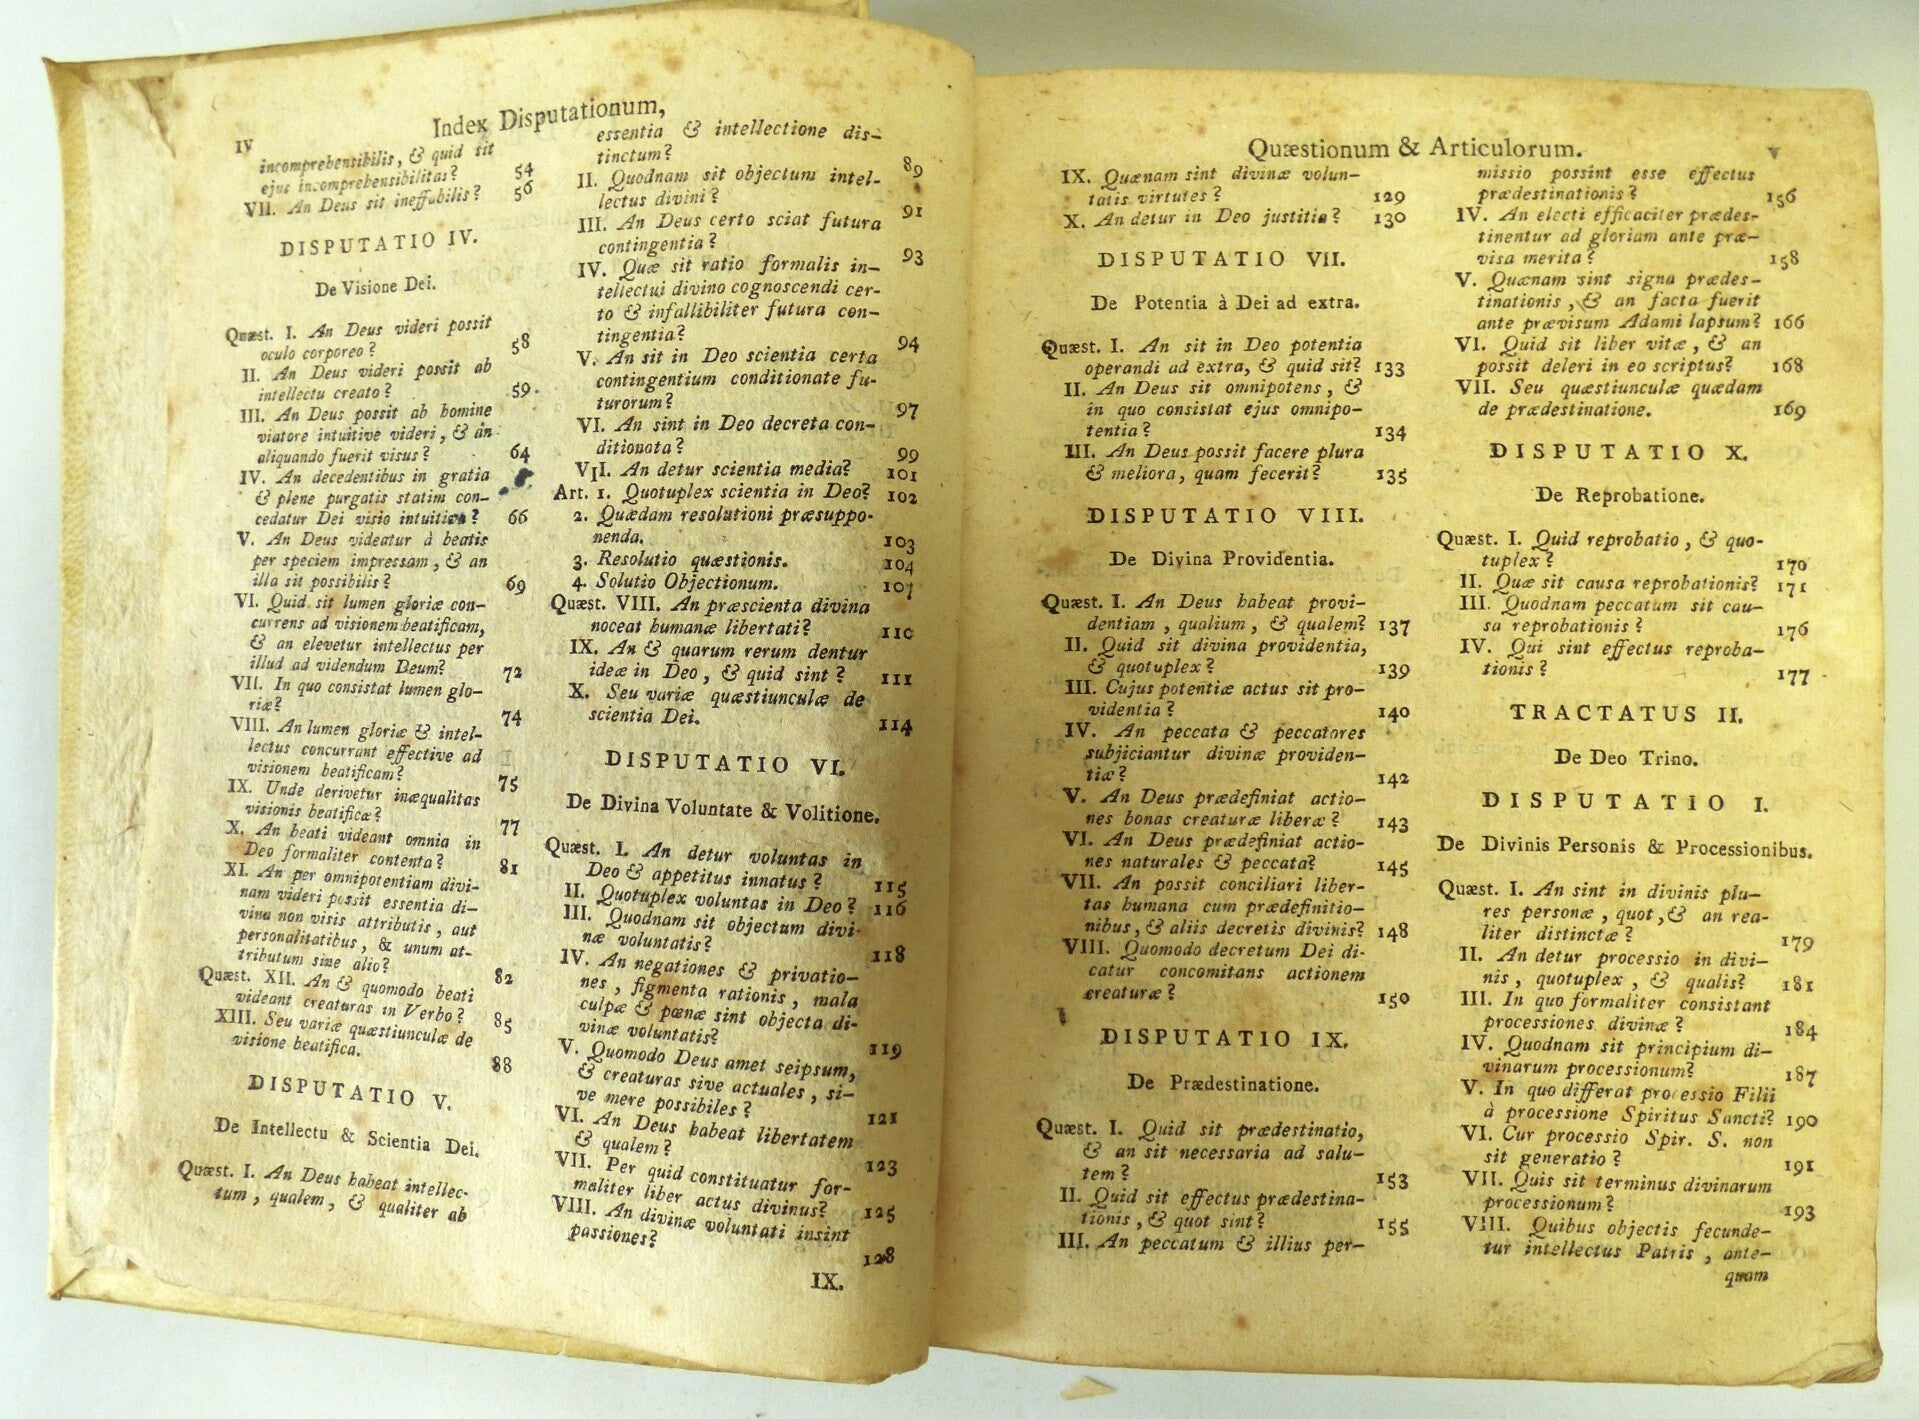 IV
Index Disputationum,
incomprehensibilis, & quid sit
ejus incomprehensibilitas? 54
VII. An Deus sit ineffabilis? 56
DISPUTATIO IV.
De Visione Dei.
Quæst. I. An Deus videri possit
oculo corporeo? 58
II. An Deus videri possit ab
intellectu creato? 59
III. An Deus possit ab homine
viatore intuitive videri, & an
aliquando fuerit visus? 64
IV. An decedentibus in gratia
& plene purgatis statim con-
cedatur Dei visio intuitiva? 66
V. An Deus videatur à beatis
per speciem impressam, & an
illa sit possibilis? 69
VI. Quid sit lumen gloriæ con-
currens ad visionem beatificam,
& an elevetur intellectus per
illud ad videndum Deum? 72
VII. In quo consistat lumen glo-
riæ? 74
VIII. An lumen gloriæ & intel-
lectus concurrant effective ad
visionem beatificam? 75
IX. Unde derivetur inæqualitas
visionis beatificæ? 77
X. An beati videant omnia in
Deo formaliter contenta? 81
XI. An per omnipotentiam divi-
nam videri possit essentia di-
vina non visis attributis, aut
personalitatibus, & unum at-
tributum sine alio? 82
Quæst. XII. An & quomodo beati
videant creaturas in Verbo? 85
XIII. Seu variæ quæstiunculæ de
visione beatifica. 88
DISPUTATIO V.
De Intellectu & Scientia Dei.
Quæst. I. An Deus habeat intellec-
tum, qualem, & qualiter ab
essentia & intellectione dis-
tinctum? 89
II. Quodnam sit objectum intel-
lectus divini? 91
III. An Deus certo sciat futura
contingentia? 93
IV. Quæ sit ratio formalis in-
tellectui divino cognoscendi cer-
to & infallibiliter futura con-
tingentia? 94
V. An sit in Deo scientia certa
contingentium conditionate fu-
turorum? 97
VI. An sint in Deo decreta con-
ditionata? 99
VII. An detur scientia media? 101
Art. 1. Quotuplex scientia in Deo? 102
2. Quædam resolutioni præsuppo-
nenda. 103
3. Resolutio quæstionis. 104
4. Solutio Objectionum. 107
Quæst. VIII. An præscienta divina
noceat humanæ libertati? 110
IX. An & quarum rerum dentur
ideæ in Deo, & quid sint? 111
X. Seu variæ quæstiunculæ de
scientia Dei. 114
DISPUTATIO VI.
De Divina Voluntate & Volitione.
Quæst. I. An detur voluntas in
Deo & appetitus innatus? 115
II. Quotuplex voluntas in Deo? 116
III. Quodnam sit objectum divi-
næ voluntatis? 118
IV. An negationes & privatio-
nes, figmenta rationis, mala
culpæ & pœnæ sint objecta di-
vinæ voluntatis? 119
V. Quomodo Deus amet seipsum,
& creaturas sive actuales, si-
ve mere possibiles? 121
VI. An Deus habeat libertatem
& qualem? 123
VII. Per quid constituatur for-
maliter liber actus divinus? 125
VIII. An divinæ voluntati insint
passiones? 128
IX.
Quæstionum & Articulorum. v
IX. Quænam sint divinæ volun-
tatis virtutes? 129
X. An detur in Deo justitia? 130
DISPUTATIO VII.
De Potentia à Dei ad extra.
Quæst. I. An sit in Deo potentia
operandi ad extra, & quid sit? 133
II. An Deus sit omnipotens, &
in quo consistat ejus omnipo-
tentia? 134
III. An Deus possit facere plura
& meliora, quam fecerit? 135
DISPUTATIO VIII.
De Divina Providentia.
Quæst. I. An Deus habeat provi-
dentiam, qualium, & qualem? 137
II. Quid sit divina providentia,
& quotuplex? 139
III. Cujus potentiæ actus sit pro-
videntia? 140
IV. An peccata & peccatores
subjiciantur divinæ providen-
tiæ? 142
V. An Deus prædefiniat actio-
nes bonas creaturæ liberæ? 143
VI. An Deus prædefiniat actio-
nes naturales & peccata? 145
VII. An possit conciliari liber-
tas humana cum prædefinitio-
nibus, & aliis decretis divinis? 148
VIII. Quomodo decretum Dei di-
catur concomitans actionem
creaturæ? 150
DISPUTATIO IX.
De Prædestinatione.
Quæst. I. Quid sit prædestinatio,
& an sit necessaria ad salu-
tem? 153
II. Quid sit effectus prædestina-
tionis, & quot sint? 155
III. An peccatum & illius per-
missio possint esse effectus
prædestinationis? 156
IV. An electi efficaciter prædes-
tinentur ad gloriam ante præ-
visa merita? 158
V. Quænam sint signa prædes-
tinationis, & an facta fuerit
ante prævisum Adami lapsum? 166
VI. Quid sit liber vitæ, & an
possit deleri in eo scriptus? 168
VII. Seu quæstiunculæ quædam
de prædestinatione. 169
DISPUTATIO X.
De Reprobatione.
Quæst. I. Quid reprobatio, & quo-
tuplex? 170
II. Quæ sit causa reprobationis? 171
III. Quodnam peccatum sit cau-
sa reprobationis? 176
IV. Qui sint effectus reproba-
tionis? 177
TRACTATUS II.
De Deo Trino.
DISPUTATIO I.
De Divinis Personis & Processionibus.
Quæst. I. An sint in divinis plu-
res personæ, quot, & an rea-
liter distinctæ? 179
II. An detur processio in divi-
nis, quotuplex, & qualis? 181
III. In quo formaliter consistant
processiones divinæ? 184
IV. Quodnam sit principium di-
vinarum processionum? 187
V. In quo differat processio Filii
à processione Spiritus Sancti? 190
VI. Cur processio Spir. S. non
sit generatio? 191
VII. Quis sit terminus divinarum
processionum? 193
VIII. Quibus objectis fecunde-
tur intellectus Patris, ante-
quam